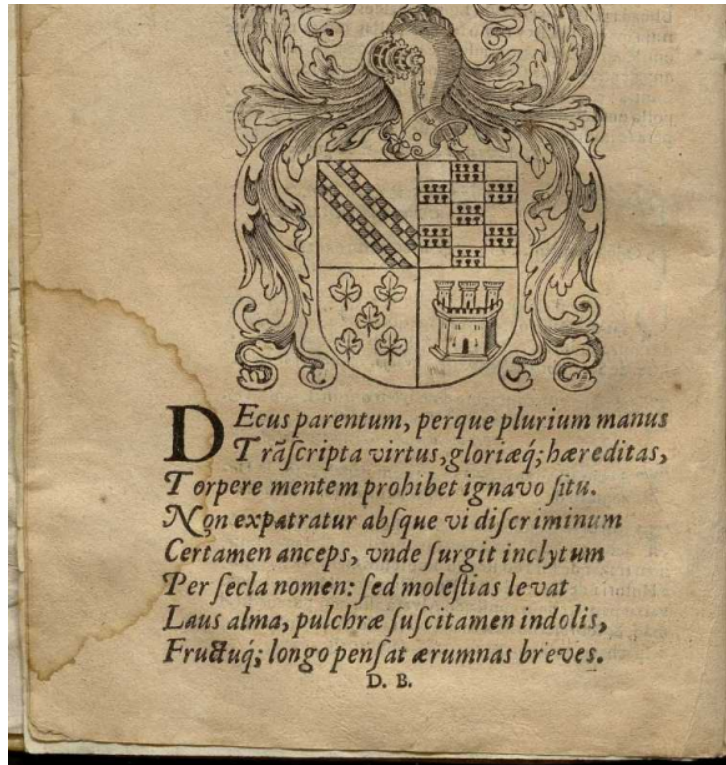 DEcus parentum, perque plurium manus
Trãſcripta virtus, gloriæq́; hæreditas,
Torpere mentem prohibet ignavo ſitu.
Non expatratur abſque vi diſcriminum
Certamen anceps, vnde ſurgit inclytum
Per ſecla nomen: ſed moleſtias levat
Laus alma, pulchræ ſuſcitamen indolis,
Fructuq́; longo penſat ærumnas breves.
D. B.